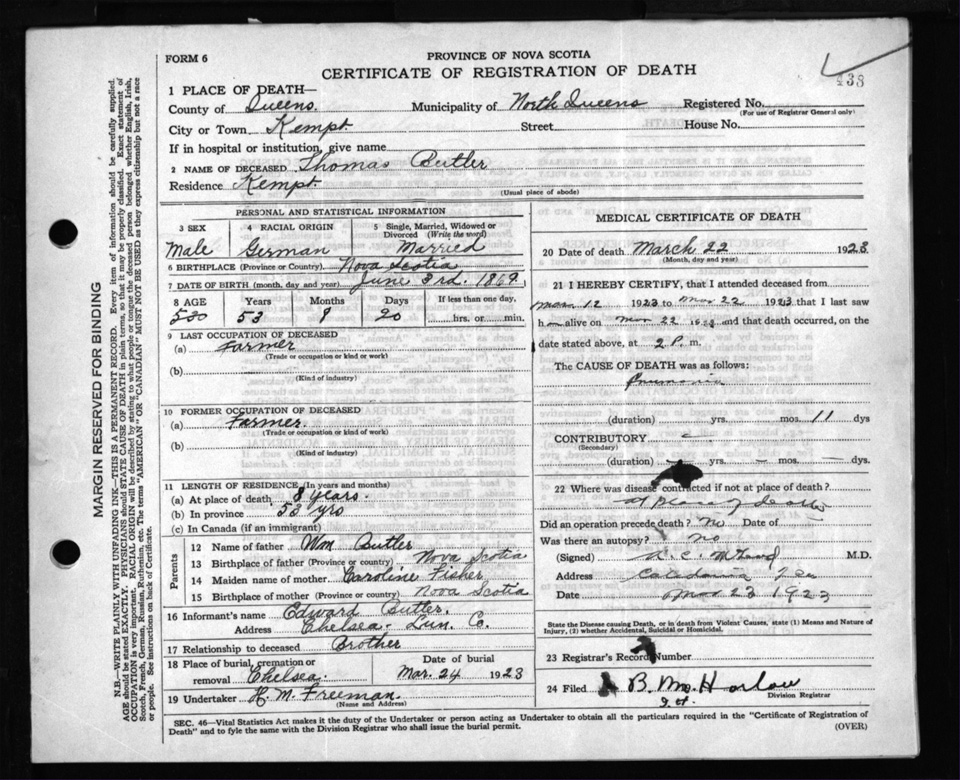 FORM 6
PROVINCE OF NOVA SCOTIA
CERTIFICATE OF REGISTRATION OF DEATH
438
1 PLACE OF DEATH—
County of Queens. Municipality of North Queens Registered No.
(For use of Registrar General only)
City or Town Kempt. Street House No.
If in hospital or institution, give name
2 NAME OF DECEASED Thomas Butler
Residence Kempt.
(Usual place of abode)
PERSONAL AND STATISTICAL INFORMATION
3 SEX 4 RACIAL ORIGIN 5 Single, Married, Widowed or Divorced (Write the word)
Male German Married
6 BIRTHPLACE (Province or Country) Nova Scotia
7 DATE OF BIRTH (month, day and year) June 3rd. 1869
8 AGE Years Months Days If less than one day,
53 9 20 hrs. or min.
9 LAST OCCUPATION OF DECEASED
(a) Farmer
(Trade or occupation or kind or work)
(b)
(Kind of industry)
10 FORMER OCCUPATION OF DECEASED
(a) Farmer.
(Trade or occupation or kind or work)
(b)
(Kind of industry)
11 LENGTH OF RESIDENCE (In years and months)
(a) At place of death 8 years.
(b) In province 53 yrs
(c) In Canada (if an immigrant)
Parents
12 Name of father Wm Butler
13 Birthplace of father (Province or country) Nova Scotia
14 Maiden name of mother Caroline Fisher
15 Birthplace of mother (Province or country) Nova Scotia
16 Informant's name Edward Butler.
Address Chelsea. Lun. Co.
17 Relationship to deceased Brother
18 Place of burial, cremation or removal Chelsea. Date of burial Mar. 24 1923
19 Undertaker H. M. Freeman.
(Name and Address)
MEDICAL CERTIFICATE OF DEATH
20 Date of death March 22 1923
(Month, day and year)
21 I HEREBY CERTIFY, that I attended deceased from
Mar 12 1923 to Mar 22 1923 that I last saw
him alive on Mar 22 1923 and that death occurred, on the
date stated above, at 2 P. m.
The CAUSE OF DEATH was as follows:
Pneumonia
(duration) yrs. mos. 11 dys
CONTRIBUTORY –
(Secondary)
(duration) – yrs. – mos. – dys.
22 Where was disease contracted if not at place of death?
at place of death
Did an operation precede death? No Date of –
Was there an autopsy? No
(Signed) M.D.
Address Caledonia
Date Mar 23 1923
State the Disease causing Death, or in death from Violent Causes, state (1) Means and Nature of Injury, (2) whether Accidental, Suicidal or Homicidal.
23 Registrar's Record Number
24 Filed B. Harlow
Division Registrar
SEC. 46—Vital Statistics Act makes it the duty of the Undertaker or person acting as Undertaker to obtain all the particulars required in the "Certificate of Registration of
Death" and to fyle the same with the Division Registrar who shall issue the burial permit. (OVER)
MARGIN RESERVED FOR BINDING
N.B.—WRITE PLAINLY WITH UNFADING INK—THIS IS A PERMANENT RECORD. Every item of information should be carefully supplied.
AGE should be stated EXACTLY. PHYSICIANS should STATE CAUSE OF DEATH in plain terms, so that it may be properly classified. Exact statement of
OCCUPATION is very important. RACIAL ORIGIN will be described by stating to what people or tongue the deceased person belonged whether English, Irish,
Scotch, French, German, Russian, Ruthenian, etc. The terms "AMERICAN" OR "CANADIAN" MUST NOT BE USED as they express citizenship but not a race
or people. See instructions on back of Certificate.